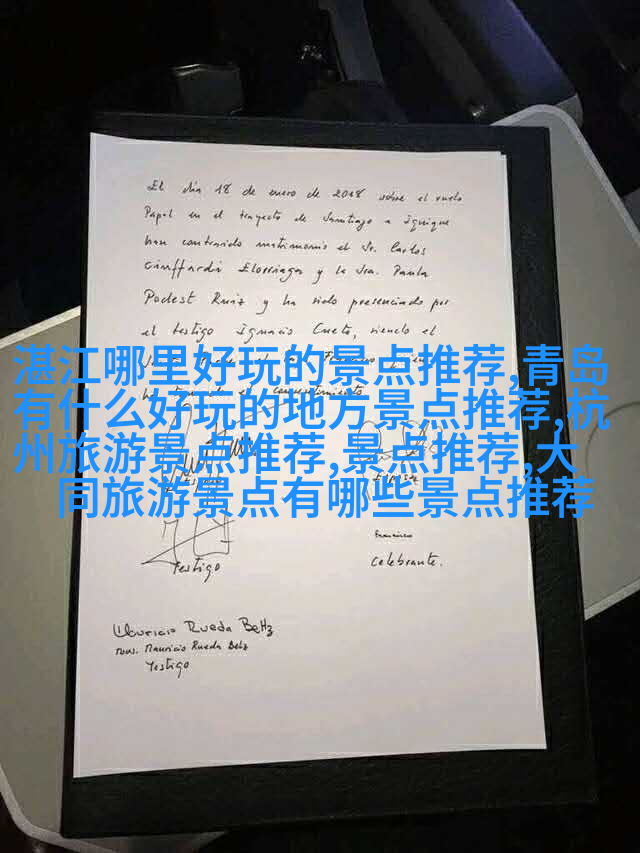 El día 18 de enero de 2018 sobre el vuelo
Papal en el trayecto de Santiago a Iquique
han contraido matrimonio el Sr. Carlos
Ciuffardi Elorriaga y la Sra. Paula
Podest Ruiz y ha sido presenciado por
el testigo Ignacio Cueto, siendo el
湛江哪里好玩的景点推荐,青岛
有什么好玩的地方景点推荐,杭
州旅游景点推荐,景点推荐,大
同旅游景点有哪些景点推荐
Testigo
Francisco
Celebrante.
Mauricio Rueda Beltz
Mons. Mauricio Rueda Beltz
Testigo